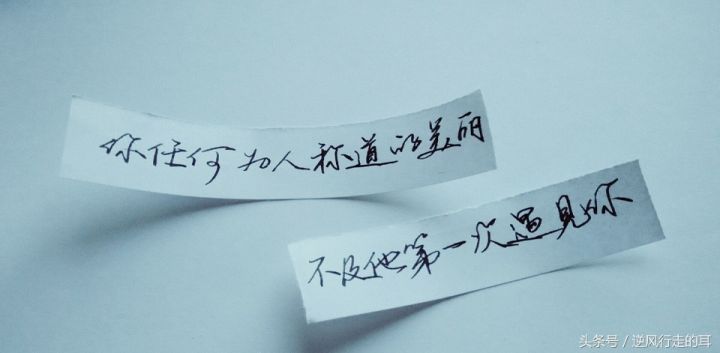 你任何为人称道的美丽
不及他第一次遇见你
头条号／逆风行走的耳